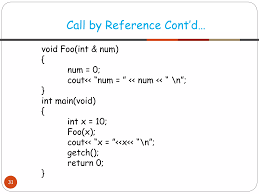 Call by Reference Cont'd...
void Foo(int & num)
{
num = 0;
cout<< "num = " << num << " \n";
}
int main(void)
{
int x = 10;
Foo(x);
cout<< "x = "<<x<< "\n";
getch();
return 0;
}
31